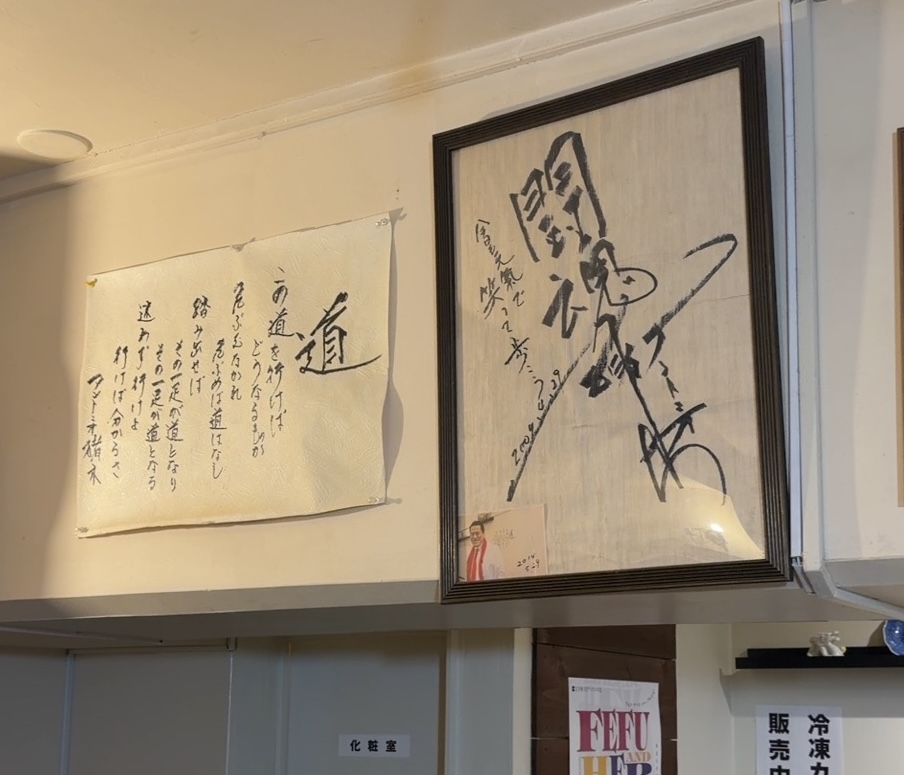 道
この道を行けば
どうなるものか
危ぶむなかれ
危ぶめば道はなし
踏み出せば
その一足が道となり
その一足が道となる
迷わず行けよ
行けば分かるさ
アントニオ猪木
闘魂
アントニオ
元氣で
笑って歩こう
化粧室
FEFU
AND
HER
冷凍
販売中